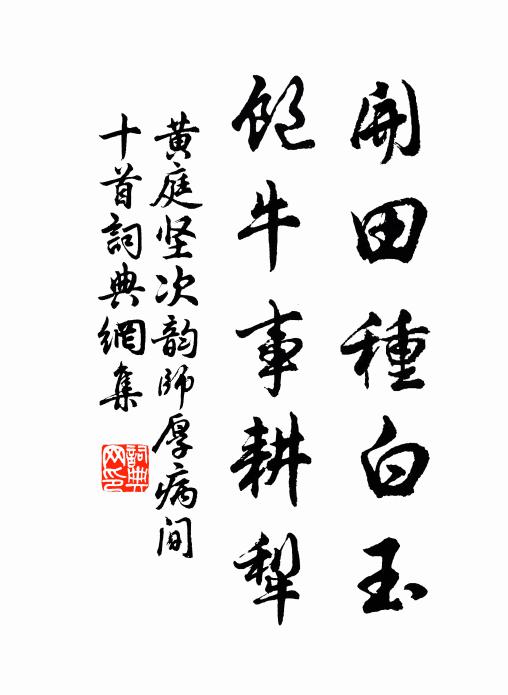 開田種白玉
飽牛事耕犁
黄庭坚次韵師厚病间
十首詞典網集
詞典网印